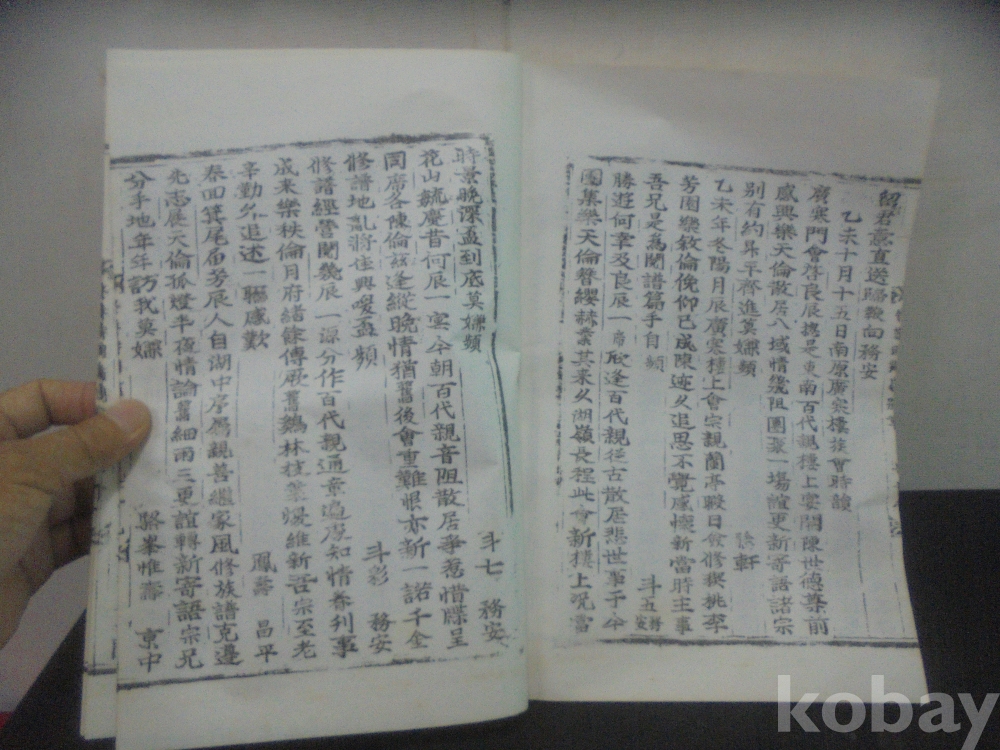 留君憙直送驅鞭向務安
乙未十月十五日南原廣寒樓族會時韻
廣寒門會啓良辰摠是東南百代親樓上宴開陳世德樂前
感興樂天倫散居八域情幾阻團聚一場誼更新寄語諸宗
別有約昇平齊進莫嫌頻
軒
乙未年冬陽月辰廣寒樓上會宗親蘭亭暇日僉修禊桃李
芳園樂敘倫俛仰已成陳迹久追思不覺感懷新當時主事
吾兄是為閱譜篇手自頻
斗五
勝遊何幸及良辰一席欣逢百代親從古散居悲世事于今
團集樂天倫簪纓赫業其來久湖嶺長程此會新樓上咒當
時景晚深盃到底莫嫌頻
斗七 務安
花山毓慶昔何辰一宴今朝百代親音阻散居爭惹惜牒呈
同席各陳倫玆逢縱晚情猶舊後會重難恨亦新一諾千金
修譜地亂將佳興嗳盃頻
斗彩 務安
修譜經營閱幾辰一源分作百代親通章遍處知情眷列事
成來樂秩倫月府緒餘傳厥舊鷄林枝業煥維新吾宗至老
辛勤外追述一軀感歎
鳳 昌平
泰回箕尾角芳辰人自湖中序屬親善繼家風修族譜克遵
先志展天倫孤燈半夜情論舊細雨三更誼轉新寄語宗兄
分手地年年訪我莫嫌
駱峯惟壽 京中
kobay